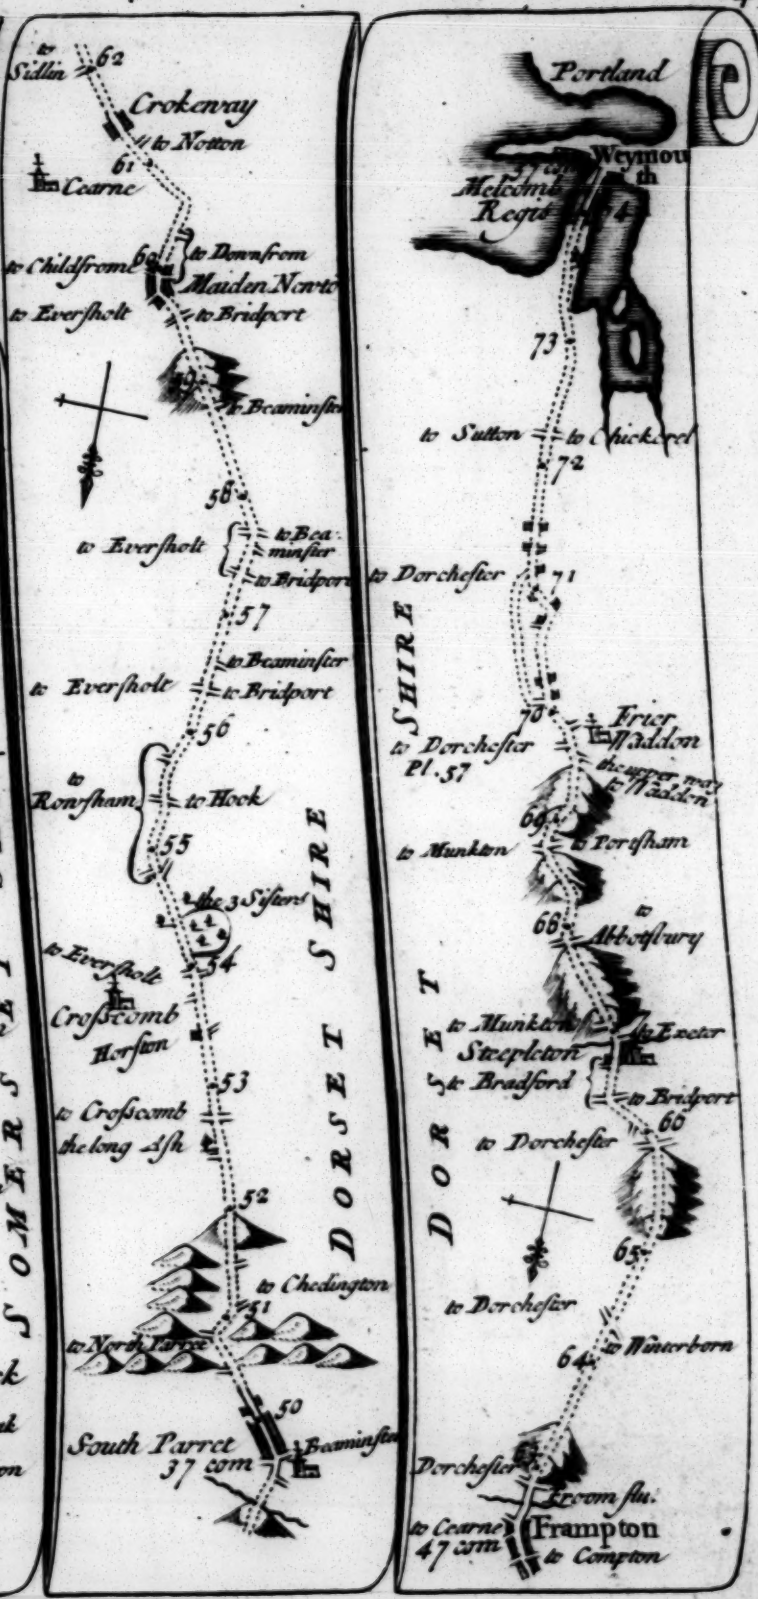 to
Sidlin
62
Crokeway
to Notton
61
Cearne
60
to Downfrom
to Childfrome
Maiden Newto
to Eversholt
to Bridport
59
to Beaminster
58
to Eversholt
to Bea:
minster
to Bridport
57
to Beaminster
to Eversholt
to Bridport
56
to
Rowsham
to Hook
55
the 3 Sisters
to Eversholt
54
Crosscomb
Horston
53
to Crosscomb
the long Ash
52
to Chedington
51
to North Parret
50
South Parret
Beaminster
37 com
DORSET SHIRE
SOMERSET
Portland
Weymou
th
Melcomb
Regis
74
73
to Sutton
to Chickerel
72
to Dorchester
71
70
Frier
Waddon
to Dorchester
Pl. 57
the upper way
to Waddon
69
to Munkton
to Portsham
68
to
Abbotsbury
to Munkton
67
to Exeter
Steepleton
to Bradford
to Bridport
66
to Dorchester
65
to Dorchester
64
to Winterborn
Dorchester
63
Froom flu.
to Cearne
Frampton
47 com
to Compton
DORSET SHIRE